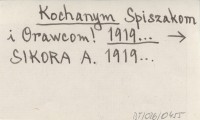 Kochanym Spiszakom
i Orawcom! 1919... →
SIKORA A. 1919...